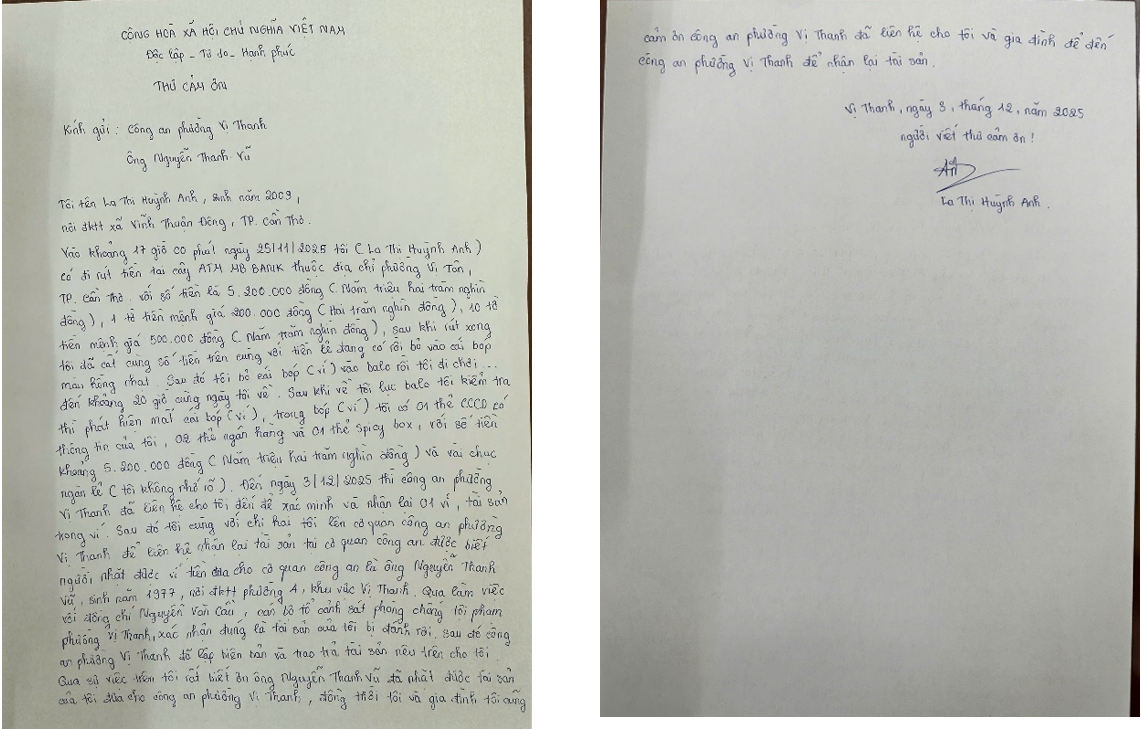 CỘNG HÒA XÃ HỘI CHỦ NGHĨA VIỆT NAM
Độc lập - Tự do - Hạnh phúc
THƯ CẢM ƠN
Kính gửi : Công an phường Vị Thanh
Ông Nguyễn Thanh Vũ
Tôi tên La Thị Huỳnh Anh, sinh năm 2009,
nơi đktt xã Vĩnh Thuận Đông, TP. Cần Thơ.
Vào khoảng 17 giờ 00 phút ngày 25/11/2025 tôi (La Thị Huỳnh Anh)
có đi rút tiền tại cây ATM MB BANK thuộc địa chỉ phường Vị Tân,
TP. Cần Thơ. với số tiền là 5.200.000 đồng (Năm triệu hai trăm nghìn
đồng), 1 tờ tiền mệnh giá 200.000 đồng (Hai trăm nghìn đồng), 10 tờ
tiền mệnh giá 500.000 đồng (Năm trăm nghìn đồng), sau khi rút xong
tôi đã cất cùng số tiền trên cùng với tiền lẻ đang có rồi bỏ vào cái bóp
màu hồng nhạt. Sau đó tôi bỏ cái bóp (ví) vào balo rồi tôi đi chơi...
đến khoảng 20 giờ cùng ngày tôi về. Sau khi về tôi lục balo tôi kiểm tra
thì phát hiện mất cái bóp (ví), trong bóp (ví) tôi có 01 thẻ CCCD có
thông tin của tôi, 02 thẻ ngân hàng và 01 thẻ Spicy box, với số tiền
khoảng 5.200.000 đồng (Năm triệu hai trăm nghìn đồng) và vài chục
ngàn lẻ (tôi không nhớ rõ). Đến ngày 3/12/2025 thì công an phường
Vị Thanh đã liên hệ cho tôi đến để xác minh và nhận lại 01 ví, tài sản
trong ví. Sau đó tôi cùng với chị hai tôi lên cơ quan công an phường
Vị Thanh để liên hệ nhận lại tài sản tại cơ quan công an được biết
người nhặt được ví tiền đưa cho cơ quan công an là ông Nguyễn Thanh
Vũ, sinh năm 1977, nơi đktt phường 4, khu vực Vị Thanh. Qua làm việc
với đồng chí Nguyễn Văn Cầu, cán bộ tổ cảnh sát phòng chống tội phạm
phường Vị Thanh, xác nhận đúng là tài sản của tôi bị đánh rơi. Sau đó công
an phường Vị Thanh đã lập biên bản và trao trả tài sản nêu trên cho tôi.
Qua sự việc trên tôi rất biết ơn ông Nguyễn Thanh Vũ đã nhặt được tài sản
của tôi đưa cho công an phường Vị Thanh, đồng thời tôi và gia đình tôi cũng
cảm ơn công an phường Vị Thanh đã liên hệ cho tôi và gia đình để đến
công an phường Vị Thanh để nhận lại tài sản.
Vị Thanh, ngày 3, tháng 12, năm 2025
người viết thư cảm ơn!
La Thị Huỳnh Anh.